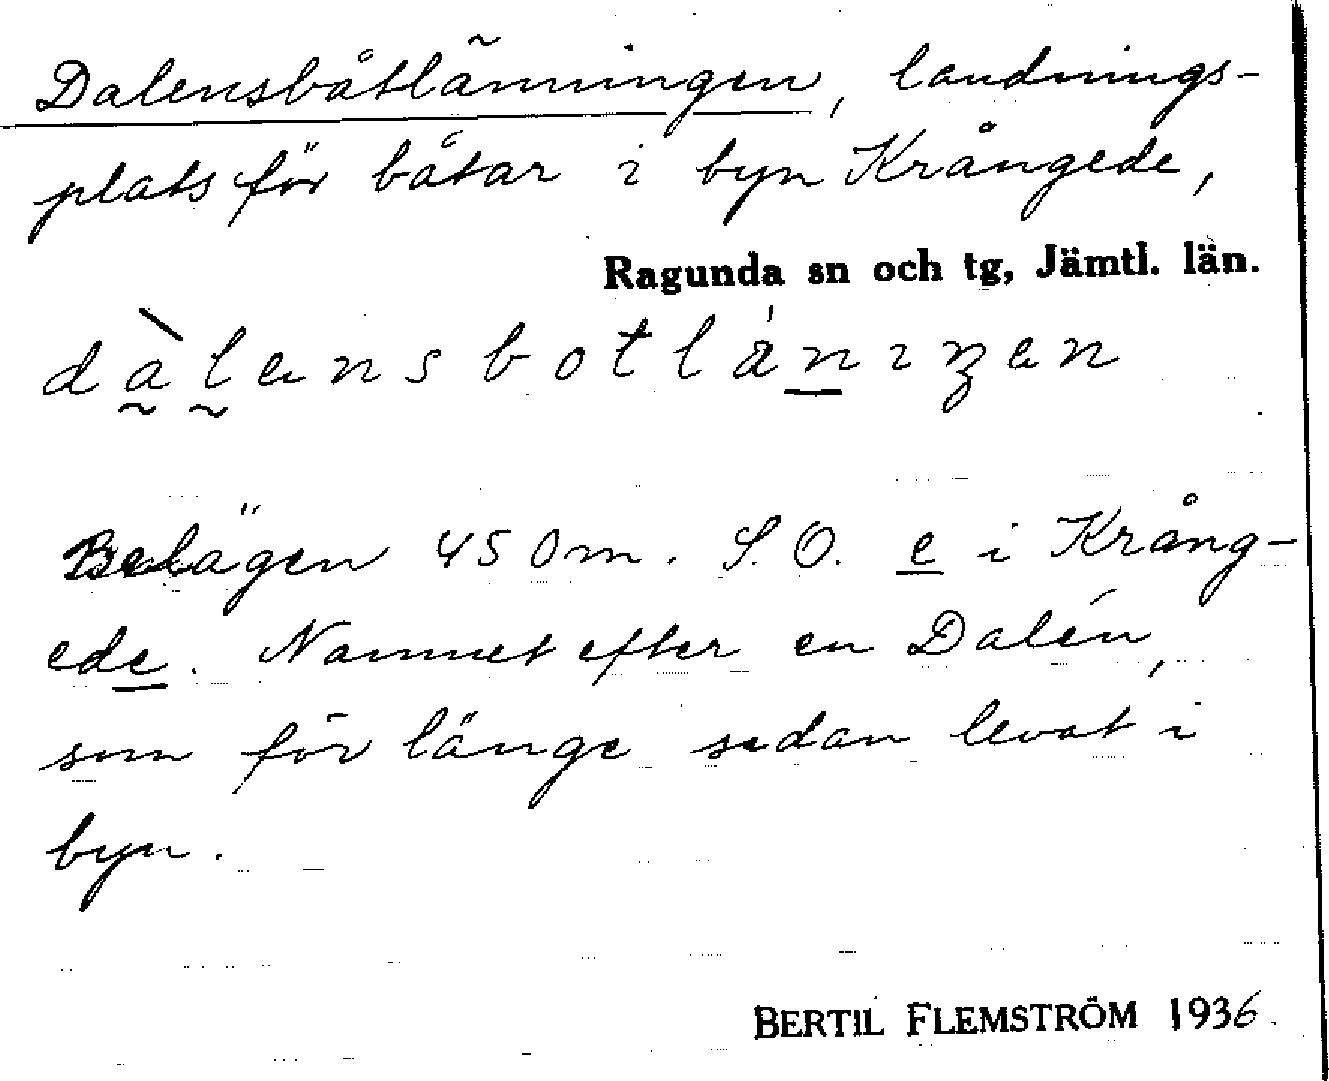 Dalensbåtlänningen, landnings-
plats för båtar i byn Krångede,
Ragunda sn och tg, Jämtl. län.
dàlensbotlä́nıŋen
Belägen 450m. S.O. e i Krång-
ede. Namnet efter en Dalén,
som för länge sedan levat i
byn.
BERTIL FLEMSTRÖM 1936.